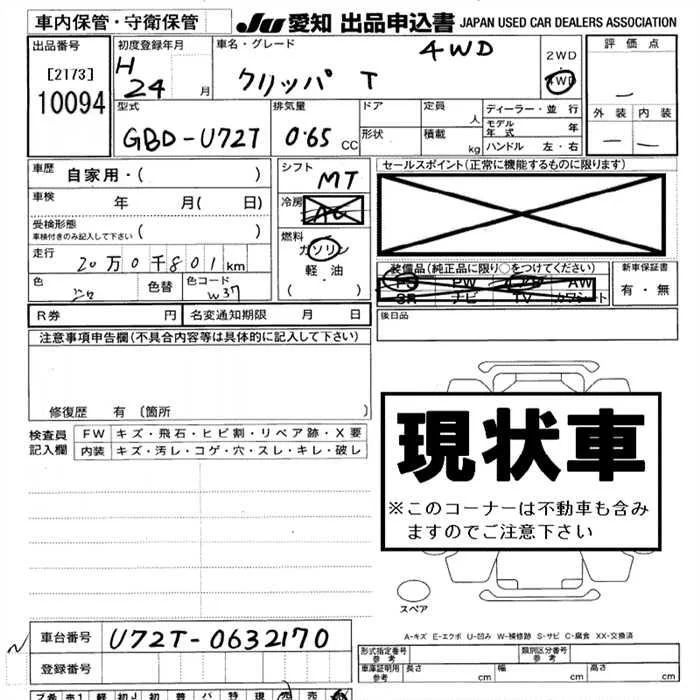 車内保管・守衛保管 JU 愛知 出品申込書 JAPAN USED CAR DEALERS ASSOCIATION
出品番号 初度登録年月 車名・グレード 4WD 2WD 評価点
[2173] H 24 月 クリッパ T 4WD —
10094 型式 排気量 ドア 定員 人 ディーラー・並行 外装 内装
GBD-U72T 0.65 CC 形状 積載 kg モデル年式 年 — —
ハンドル 左・右
車歴 自家用・( ) シフト MT セールスポイント(正常に機能するものに限ります)
車検 年 月( 日) 冷房 AC
受検形態 ( )
車検付きのみ記入して下さい
燃料 ガソリン
走行 20万0千801km 軽・油 装備品(純正品に限り○をつけてください) 新車保証書
色 シロ 色替 色コード W37 ( ・ ) PS PW AW 有・無
SR ナビ TV カワシート
R券 円 名変通知期限 月 日 後日品
注意事項申告欄(不具合内容等は具体的に記入して下さい)
修復歴 有 (箇所 )
検査員 FW キズ・飛石・ヒビ割・リペア跡・X要
記入欄 内装 キズ・汚レ・コゲ・穴・スレ・キレ・破レ
現状車
※このコーナーは不動車も含み
ますのでご注意下さい
スペア
A-キズ E-エクボ U-凹み W-補修跡 S-サビ C-腐食 XX-交換済
車台番号 U72T-0632170 形式指定番号 参考 類別区分番号 参考
登録番号 車庫証明用 参考 長さ cm 幅 cm 高さ cm